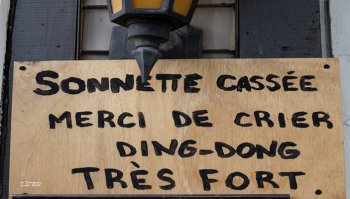 SONNETTE CASSÉE
MERCI DE CRIER
DING-DONG
TRÈS FORT.